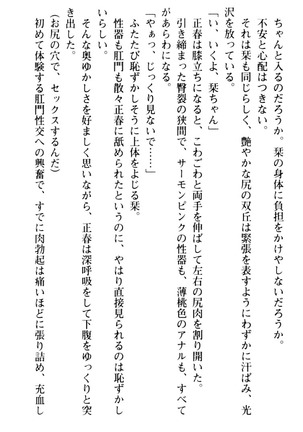 ちゃんと入るのだろうか。栞の身体に負担をかけやしないだろうか。
不安と心配はつきない。
それは栞も同じらしく、艶やかな尻の双丘は緊張を表すようにわずかに汗ばみ、光
沢を放っている。
「い、いくよ、栞ちゃん」
正春は膝立ちになると、こわごわと両手を伸ばして左右の尻肉を割り開いた。
引き締まった臀裂の狭間で、サーモンピンクの性器も、薄桃色のアナルも、すべて
があらわになる。
「やぁっ、じっくり見ないで……」
ふたたび恥ずかしそうに上体をよじる栞。
性器も肛門も散々正春に舐められたというのに、やはり直接見られるのは恥ずかし
いらしい。
そんな奥ゆかしさを好ましく思いながら、正春は深呼吸をして下腹をゆっくりと突
き出した。
（お尻の穴で、セックスするんだ）
初めて体験する肛門性交への興奮で、すでに肉勃起は痛いほどに張り詰め、充血し